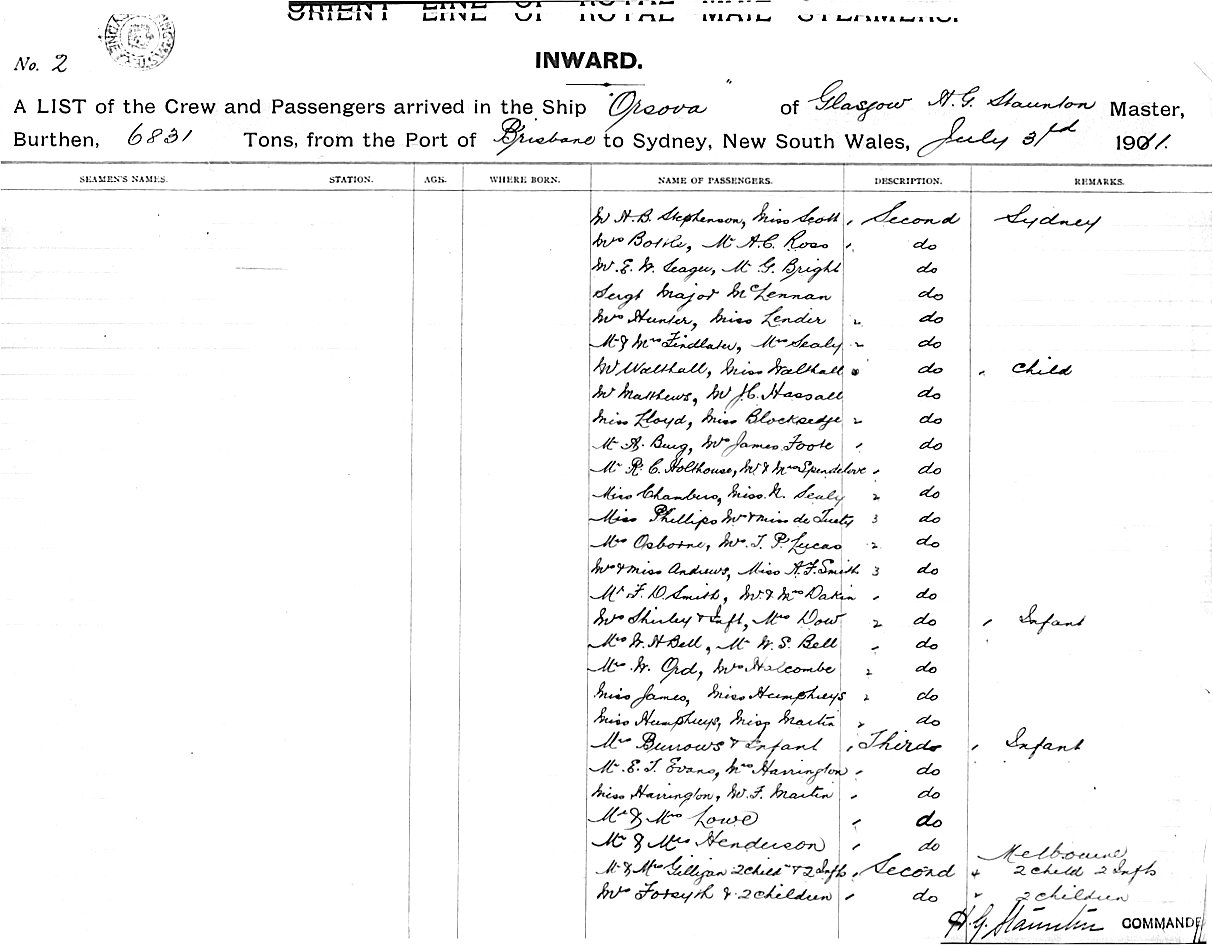 ORIENT LINE OF ROYAL MAIL STEAMERS.
No. 2
INWARD.
A LIST of the Crew and Passengers arrived in the Ship "Orsova" of Glasgow A. G. Staunton Master,
Burthen, 6831 Tons, from the Port of Brisbane to Sydney, New South Wales, July 31st 1911.
SEAMEN'S NAMES. STATION. AGE. WHERE BORN. NAME OF PASSENGERS. DESCRIPTION. REMARKS.
Mr H. B. Stephenson, Miss Scott , Second Sydney
Mrs Bottle, Mr A. C. Ross , do
Mr. E. W. Seager, Mr G. Bright do
Sergt Major McLennan do
Mrs Hunter, Miss Lender 2 do
Mr & Mrs Findlater, Mrs Sealy 2 do
Mr Walthall, Miss Walthall do , Child
Mr Matthews, Mr J. C. Hassall do
Miss Lloyd, Miss Blocksedge 2 do
Mr A. Burg, Mrs James Foote , do
Mr R. C. Holthouse, Mr & Mrs Spendelove , do
Miss Chambers, Miss. N. Sealy 2 do
Miss Phillips Mrs & Miss de 3 do
Mrs Osborne, Mrs. T. P. Lucas 2 do
Mrs & Miss Andrews, Miss A. F. Smith 3 do
Mr F. D Smith, Mr & Mrs Dakin , do
Mrs Shirley & Inft, Mrs Dow 2 do , Infant
Mrs W. H Bell, Mr W. S. Bell , do
Mrs W. Ord, Mrs Halcombe 2 do
Miss James, Miss Humphreys 2 do
Miss Humphreys, Miss Martin 2 do
Mrs Burrows & Infant , Third do , Infant
Mr E. T. Evans, Mrs Harrington , do
Miss Harrington, W. F. Martin , do
Mr & Mrs Lowe , do
Mr & Mrs Henderson , do
Melbourne
Mr & Mrs Gilligan 2 child & 2 Infts , Second 2 child 2 Infts
Mrs Forsyth & 2 children , do 2 children
H. G. Staunton COMMANDE